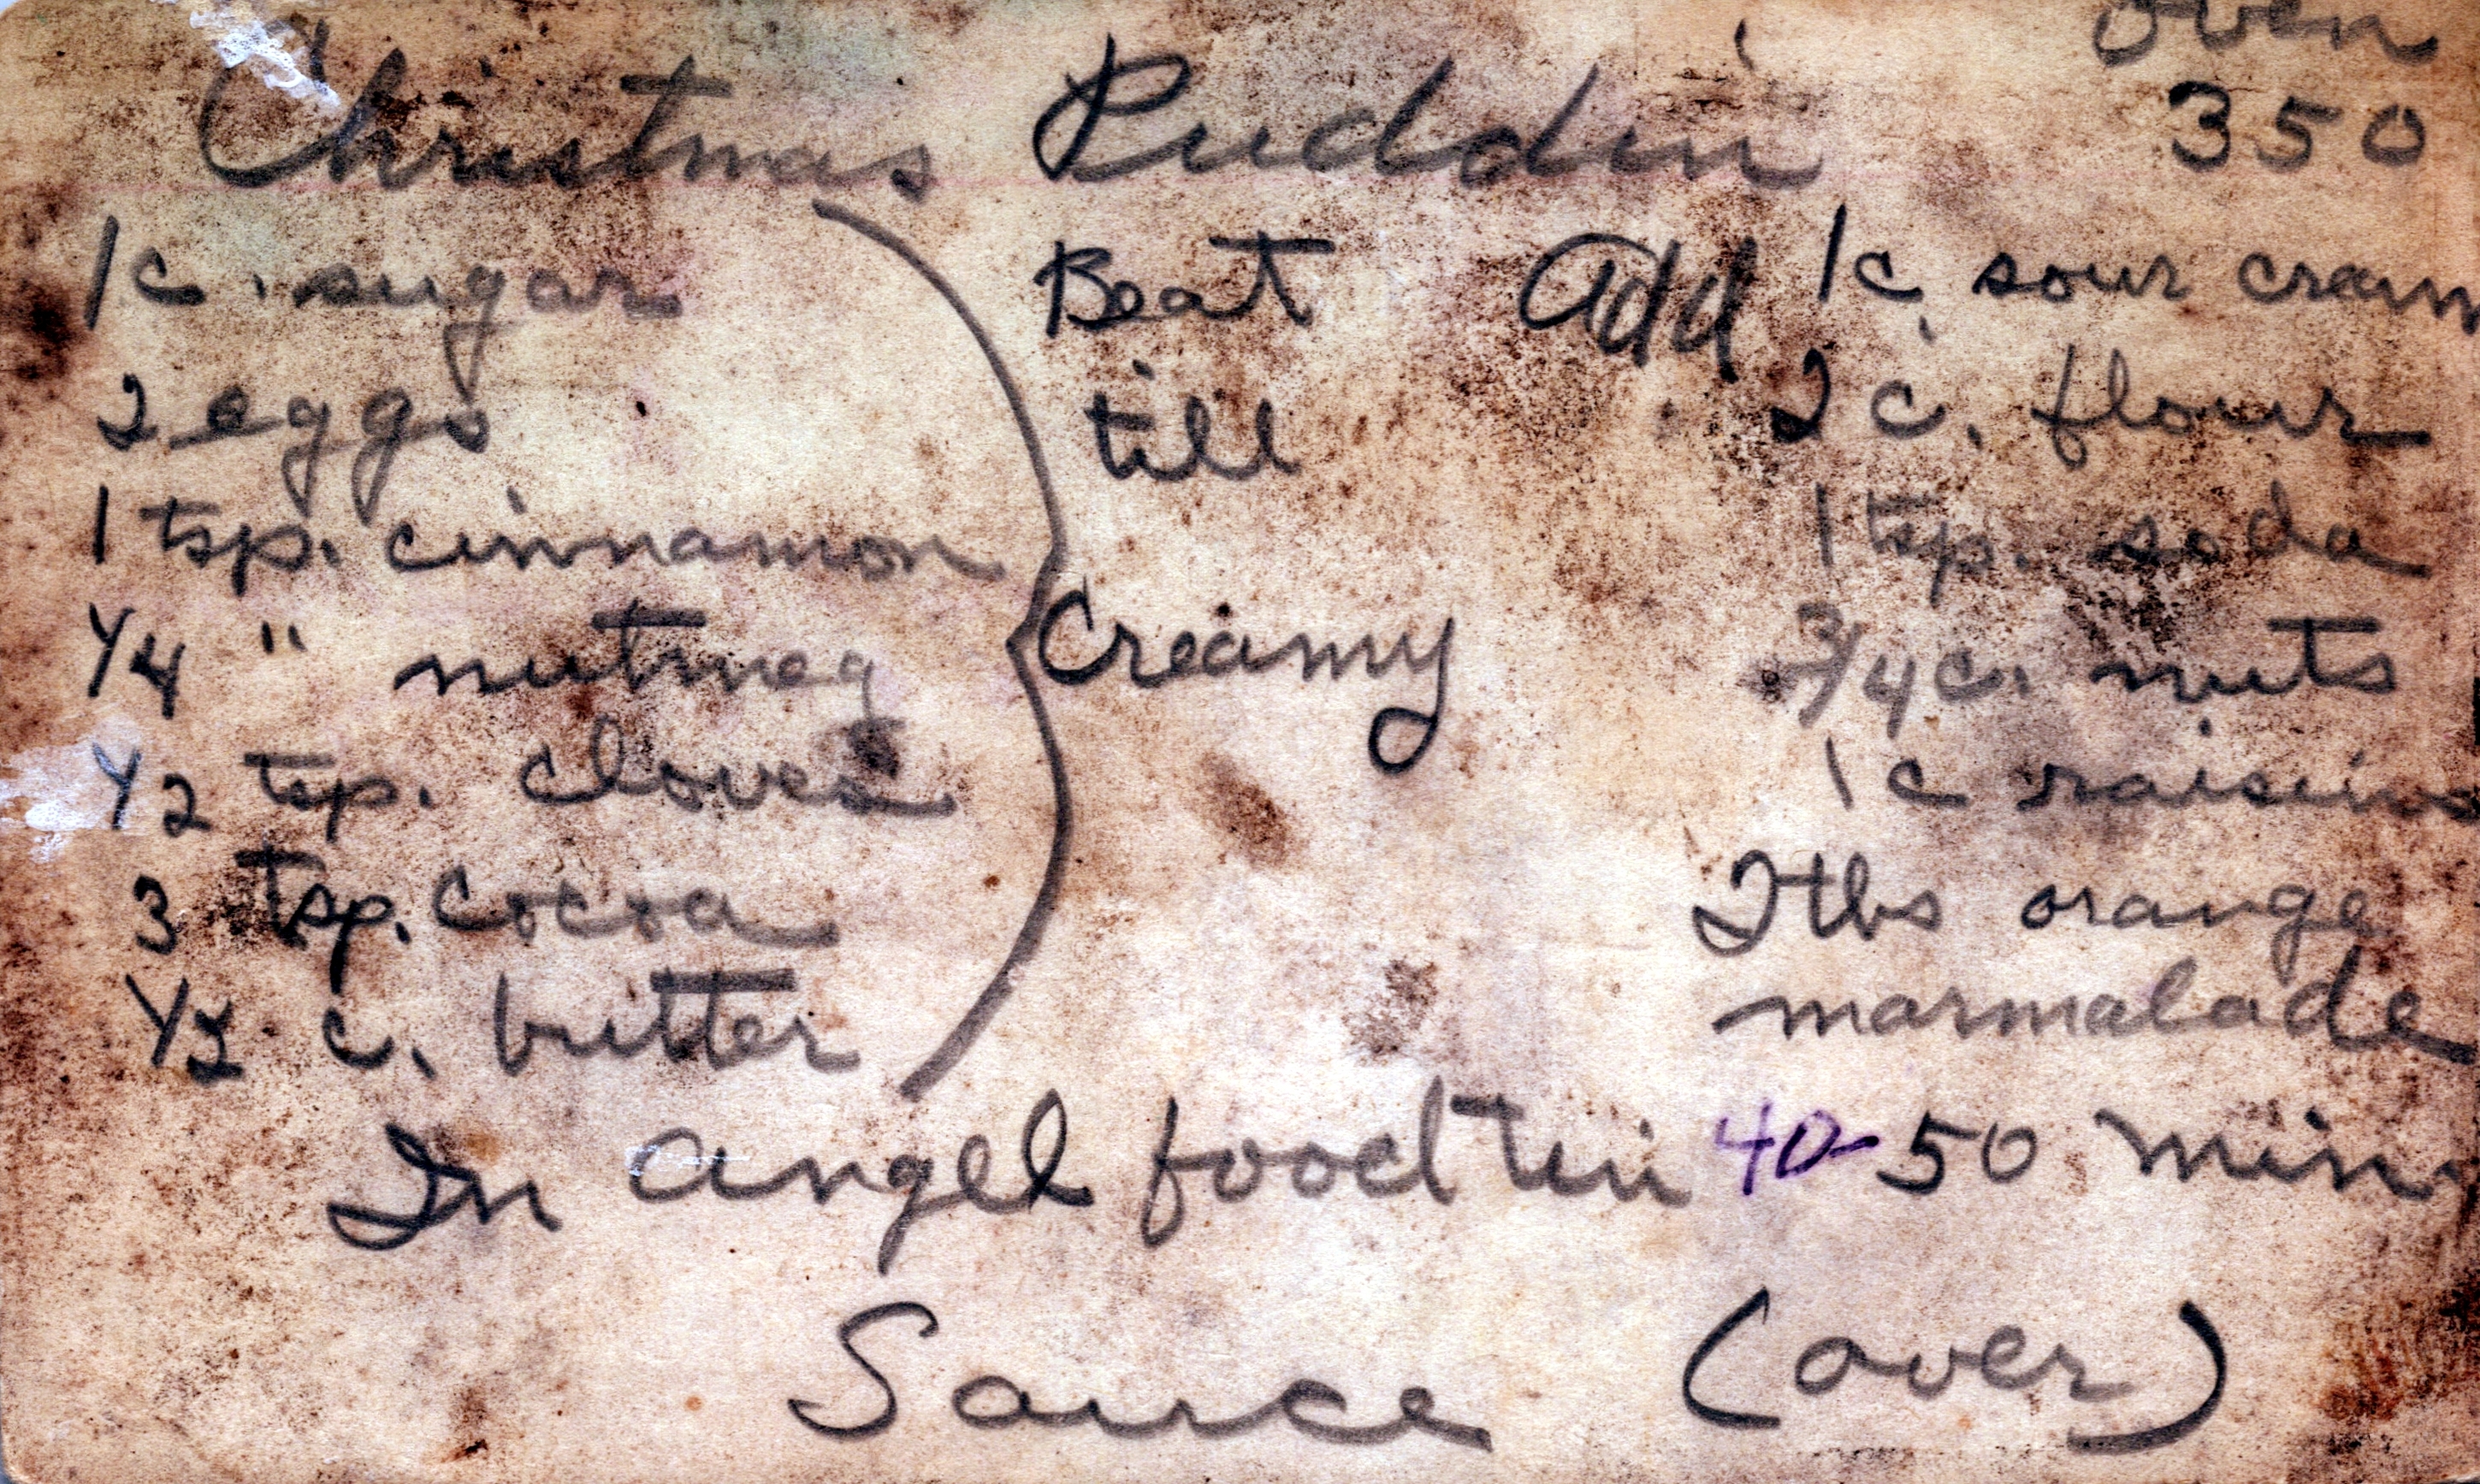 Oven
350
Christmas Puddin'
1c. sugar
2 eggs
1 tsp. cinnamon
1/4 " nutmeg
1/2 tsp. cloves
3 tsp. cocoa
1/2 c. butter
Beat
till
Creamy
add 1c. sour cream
2 c. flour
1 tsp. soda
3/4 c. nuts
1 c raisins
2 tbs orange
marmalade
In angel food tin 40-50 min
Sauce (over)